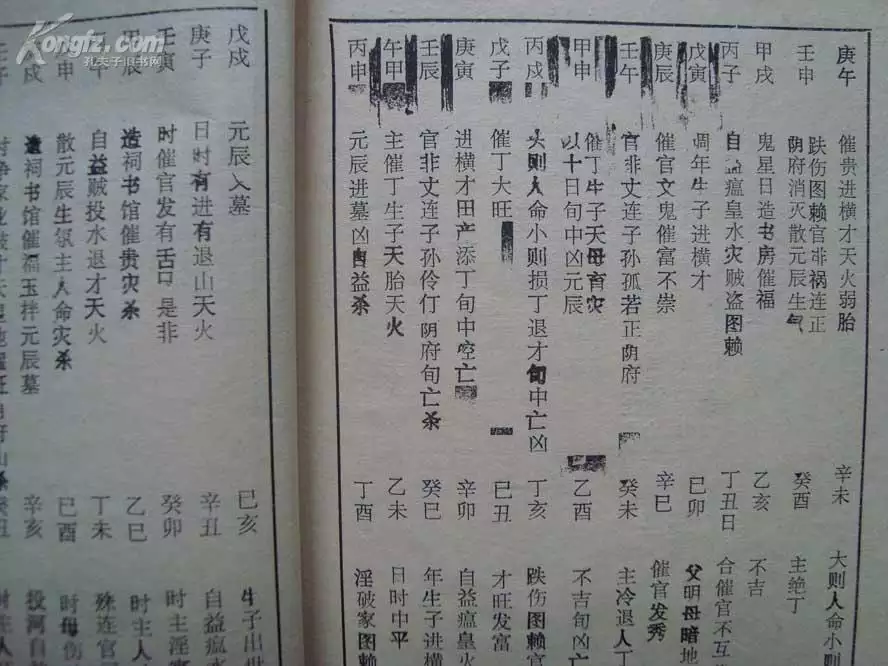 Kongfz.com
孔夫子旧书网
庚午 催贵进横才天火弱胎 辛未 大则人命小则
壬申 跌伤图赖官非祸连正阴府消灭散元辰生气 癸酉 主绝丁
甲戌 鬼星日造书房催福 乙亥 不吉
丙子 自益瘟皇水灾贼盗图赖 丁丑日 合催官不互
戊寅 周年生子进横才 己卯 父明母暗地
庚辰 催官文鬼催富不崇 辛巳 催官发秀
壬午 官非丈连子孙孤若正阴府 癸未 主冷退人丁
甲申 催丁生子天母育灾以十日旬中凶元辰 乙酉 不吉旬凶
丙戌 则人命小则损丁退才旬中亡凶 丁亥 跌伤图赖官
戊子 催丁大旺 巳丑 才旺发富
庚寅 进横才田产添丁旬中空亡 辛卯 自益瘟皇火
壬辰 官非丈连子孙伶仃阴府旬亡杀 癸巳 年生子进横
午甲 主催丁生子天胎天火 乙未 日时中平
丙申 元辰进墓凶自益杀 丁酉 淫破家图赖
戊戍 元辰入墓 巳亥 生子出世
庚子 日时有进有退山天火 辛丑 自益瘟水
壬寅 时催官发有舌口是非 癸卯 时主淫
甲辰 造祠书馆催贵灾杀 乙巳 时主人
午 自益贼投水退才天火 丁未 殊连官
申 散元辰生氛主人命灾杀 巳酉 时母伤
戌 造祠书馆催福玉拌元辰墓 辛亥 投河自
壬子 癸丑 时主人